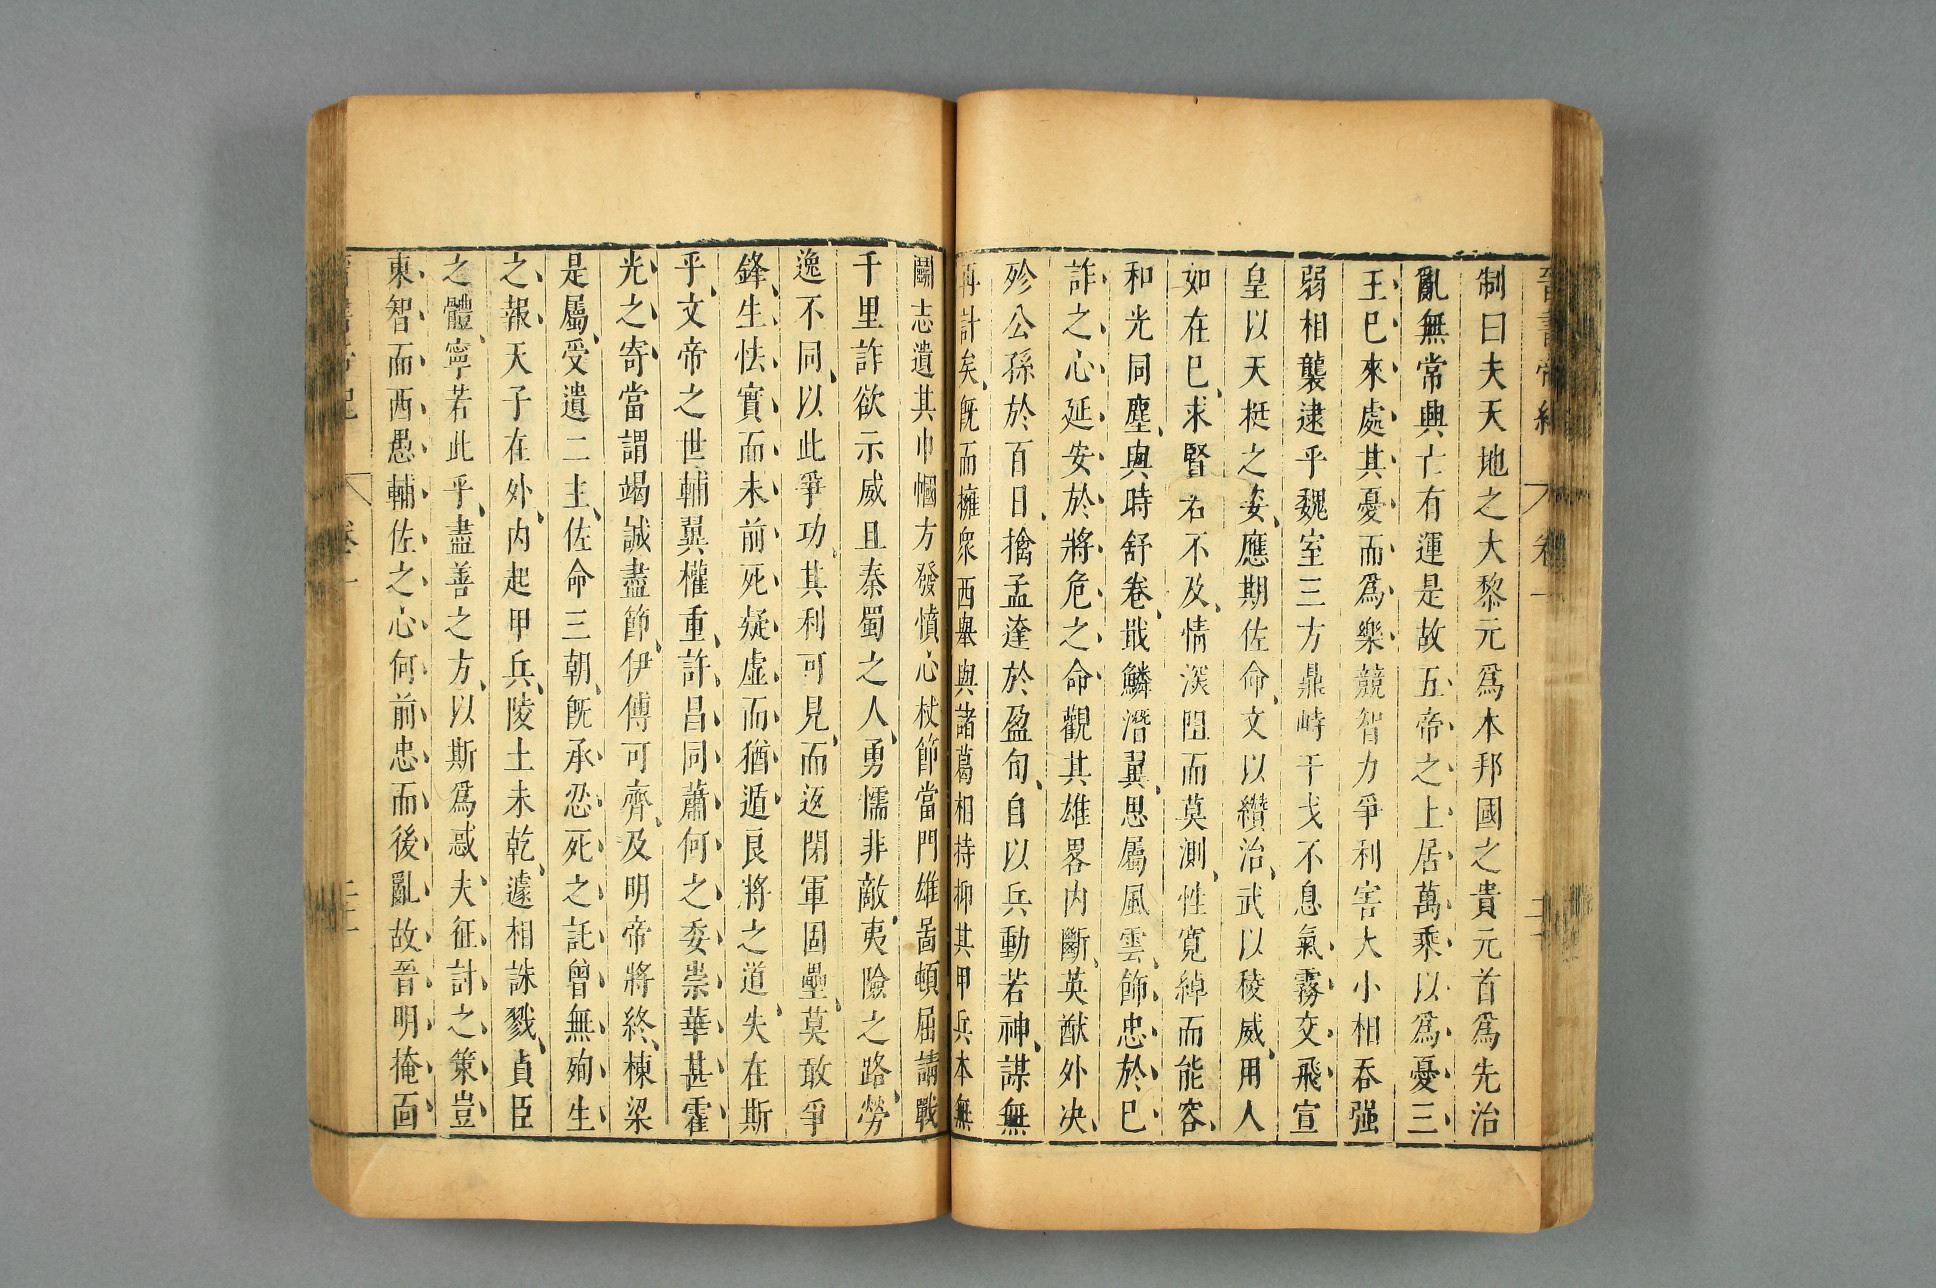 晉書帝紀 卷一
制曰夫天地之大黎元爲本邦國之貴元首爲先治
亂無常興亡有運是故五帝之上居萬乘以爲憂三
王已來處其憂而爲樂競智力爭利害大小相吞强
弱相襲逮乎魏室三方鼎峙干戈不息氣霧交飛宣
皇以天挺之姿應期佐命文以纘治武以稜威用人
如在已求賢若不及情深阻而莫測性寛綽而能容
和光同塵與時舒卷戢鱗潛翼思屬風雲飾忠於已
詐之心延安於將危之命觀其雄畧内斷英猷外决
殄公孫於百日擒孟達於盈旬自以兵動若神謀無
再計矣旣而擁衆西舉與諸葛相持抑其甲兵本無
鬭志遺其巾幗方發憤心杖節當門雄啚頓屈請戰
千里詐欲示威且秦蜀之人勇懦非敵夷險之路勞
逸不同以此爭功其利可見而返閉軍固壘莫敢爭
鋒生怯實而未前死疑虛而猶遁良將之道失在斯
乎文帝之世輔翼權重許昌同蕭何之委崇華甚霍
光之寄當謂竭誠盡節伊傅可齊及明帝將終棟梁
是屬受遺二主佐命三朝旣承忍死之託曾無殉生
之報天子在外内起甲兵陵土未乾遽相誅戮貞臣
之體寧若此乎盡善之方以斯爲惑夫征討之策豈
東智而西愚輔佐之心何前忠而後亂故晉明掩面
晉書帝紀 卷一